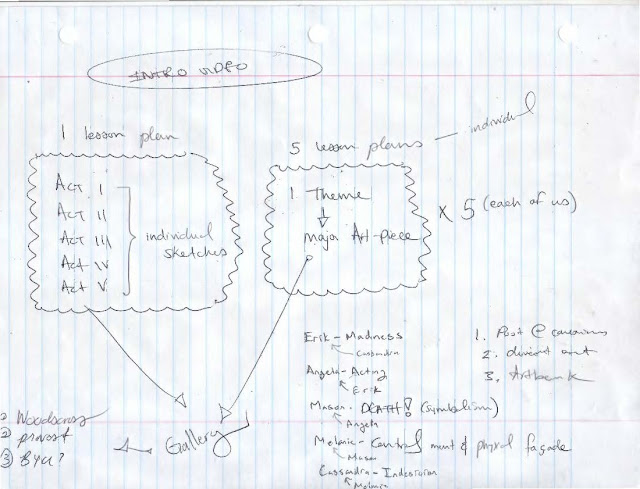 INTRO VIDEO
1 lesson plan
Act I
Act II
Act III
Act IV
Act V
individual
sketches
5 lesson plans — individual
1 Theme
Maja Art-piece
x 5 (each of us)
Erik - Madness
Cassandra
Angela - Acting
Erik
Mason - DEATH! (symbolism)
Angela
Melanie - Control ment & physical façade
Mason
Cassandra - Indecision
Melanie
1. Post @
2.
3. Artbank
Gallery
1
2 provost
3 BYU?